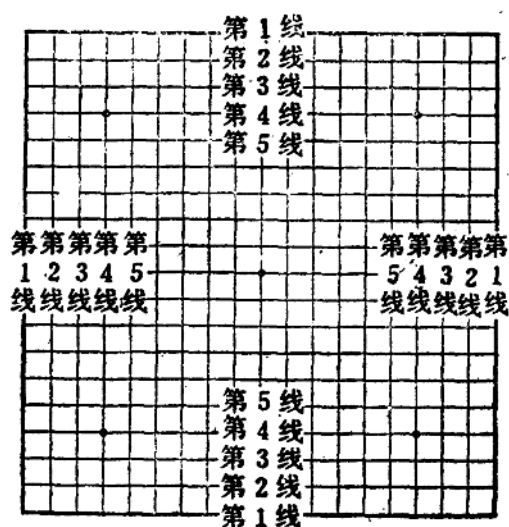 第1线
第2线
第3线
第4线
第5线
第1线
第2线
第3线
第4线
第5线
第5线
第4线
第3线
第2线
第1线
第5线
第4线
第3线
第2线
第1线